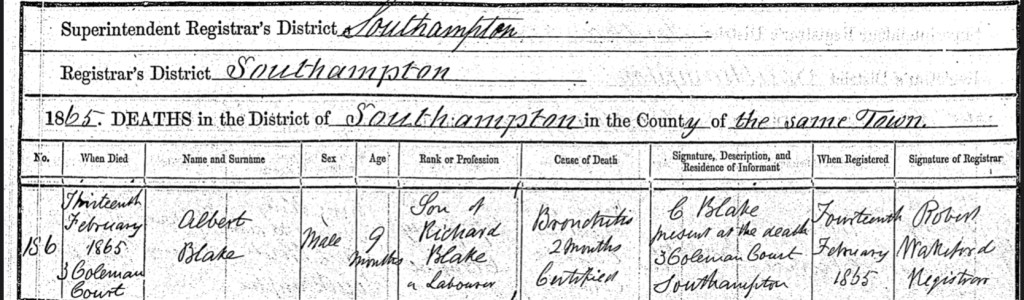 Superintendent Registrar's District Southampton
Registrar's District Southampton
1865. DEATHS in the District of Southampton in the County of the same Town.
No.
When Died
Name and Surname
Sex
Age
Rank or Profession
Cause of Death
Signature, Description, and
Residence of Informant
When Registered
Signature of Registrar
186
Thirteenth
February
1865
3 Coleman
Court
Albert
Blake
Male
9
months
Son of
Richard
Blake
a Labourer
Bronchitis
2 months
Certified
C Blake
present at the death
3 Coleman Court
Southampton
Fourteenth
February
1865
Robert
Wakeford
Registrar